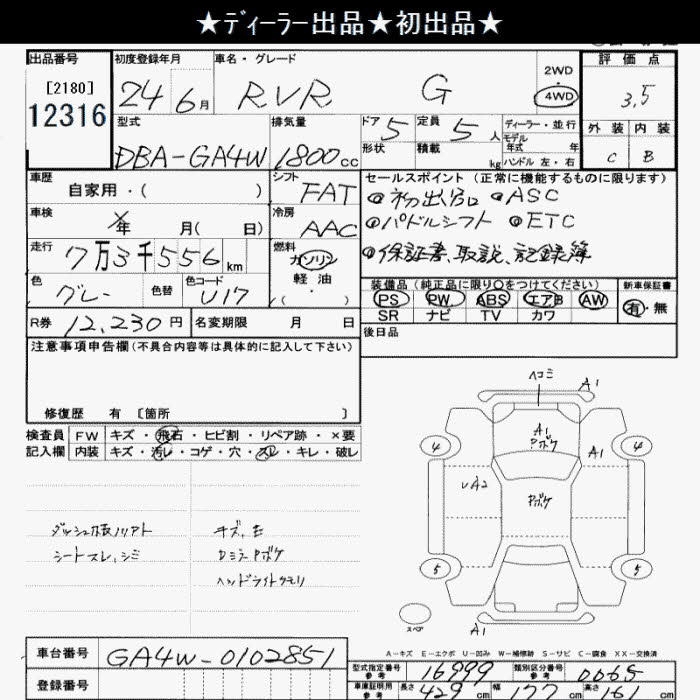 ★ディーラー出品★初出品★
出品番号 初度登録年月 車名・グレード 評価点
[2180]
12316
24 6月 RVR G 2WD 4WD 3.5
型式 排気量 ドア 5 定員 5人 ディーラー・並行 外装 内装
DBA-GA4W 1800cc 形状 積載 kg モデル年式 年 ハンドル 左・右 C B
車歴 自家用・( ) シフト FAT セールスポイント (正常に機能するものに限ります)
初出品 ASC
車検 年 月( 日) 冷房 AAC パドルシフト ETC
走行 7万3千556km 燃料 ガソリン 軽油 ( ・ ) 保証書、取説、記録簿
色 グレー 色替 色コード U17 装備品 (純正品に限り○をつけてください) 新車保証書
PS PW ABS エアB AW 有・無
SR ナビ TV カワ
R券 12,230円 名変期限 月 日 後日品
注意事項申告欄 (不具合内容等は具体的に記入して下さい)
修復歴 有 [箇所 ]
検査員 FW キズ・飛石・ヒビ割・リペア跡・×要
記入欄 内装 キズ・汚レ・コゲ・穴・スレ・キレ・破レ
シートスレ、シミ
ヘッドライトクモリ
ヘコミ A1
A1 Pボケ
4 A1 4
A2 Pボケ
5 5
スペア A1
A-キズ E-エクボ U-凹み W-補修跡 S-サビ C-腐食 XX-交換済
車台番号 GA4W-0102851
登録番号
型式指定番号 参考 16999 類別区分番号 参考 0065
車庫証明用 参考 長さ 429cm 幅 177cm 高さ 161cm